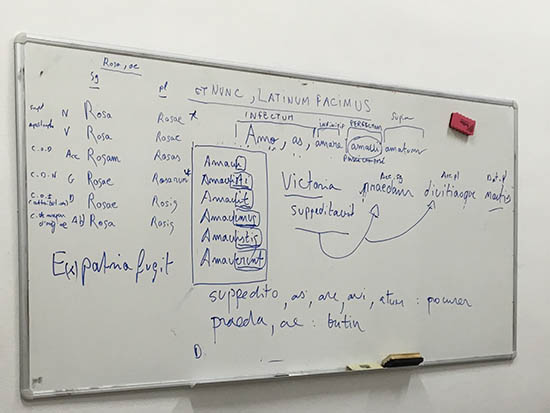 Rosa, ae
Sg pl
N Rosa Rosae
V Rosa Rosae
C.O.D Acc Rosam Rosas
C.D.N G Rosae Rosarum
C.O.I D Rosae Rosis
Ab Rosa Rosis
E(x) patria fugit
ET NUNC, LATINUM FACIMUS
INFECTUM infinitif PERFECTUM Supin
Amo, as, amare, amavi, amatum
Amavi
Amavisti
Amavit
Amavimus
Amavistis
Amaverunt
Acc. sg Acc. pl Dat. pl
Victoria praedam divitiasque
suppeditavit
suppedito, as, are, avi, atum : procurer
praeda, ae : butin
D.